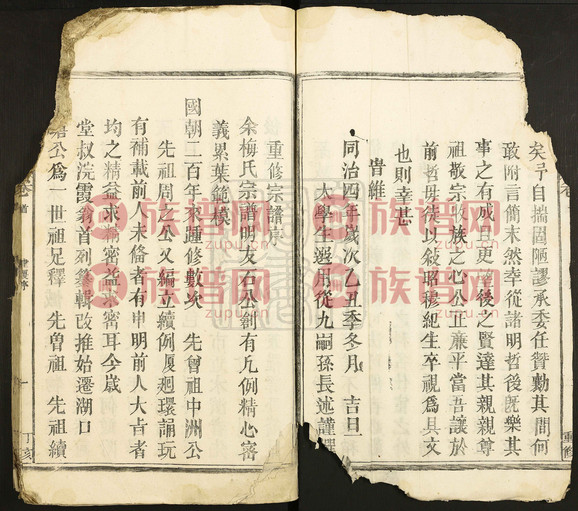 矣予自揣固陋謬承委任贊勷其間何
敢附言簡末然幸從諸明哲後既樂其
事之有成且更望後之賢達其親親尊
祖敬宗收族之心公正廉平當吾讓於
前哲毋徒以敘昭穆紀生卒視爲具文
也則幸甚
旹維
同治四年歲次乙丑季冬月 吉旦
太學生選用從九嗣孫長述謹
重修宗譜序
余梅氏宗譜明友石公創有凡例精心審
義累葉範模
國朝二百年來踵修數次 先曾祖中洲公
先祖周之公又編立續例廻環誦玩
有補載前人未脩者有申明前人大㫖者
均之精益求精密益求密耳今歲
堂叔浣霞翁首列纂輯改推始遷湖口
公爲一世祖足釋 先曾祖 先祖續
卷首
一
丁亥
重修
族谱网
www.zupu.cn